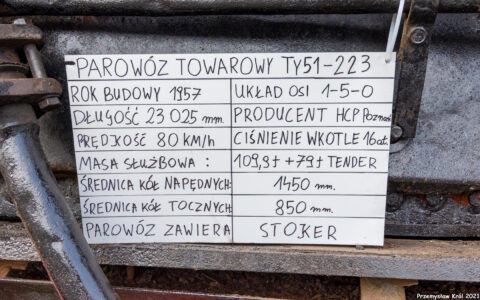 PAROWÓZ TOWAROWY TY51-223
ROK BUDOWY 1957 UKŁAD OSI 1-5-0
DŁUGOŚĆ 23 025 mm. PRODUCENT HCP Poznań
PRĘDKOŚĆ 80 KM/h CIŚNIENIE W KOTLE 16 at.
MASA SŁUŻBOWA: 109,3t + 79t TENDER
ŚREDNICA KÓŁ NAPĘDNYCH: 1450 mm.
ŚREDNICA KÓŁ TOCZNYCH: 850 mm.
PAROWÓZ ZAWIERA STOJKER
Przemysław Król 2021